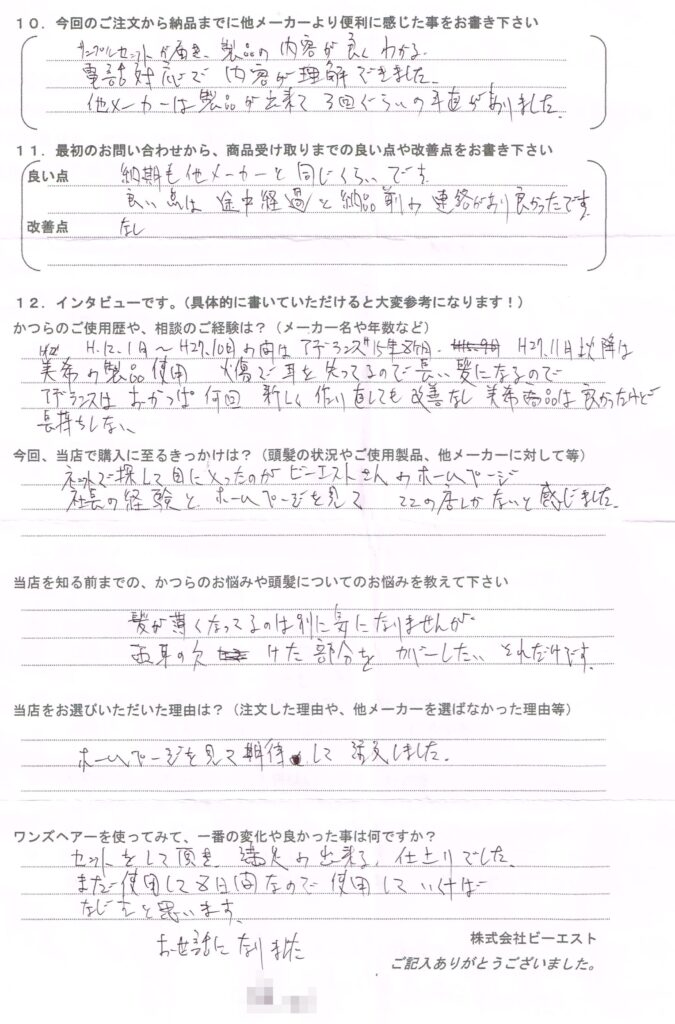 １０．今回のご注文から納品までに他メーカーより便利に感じた事をお書き下さい
サンプルセットが届き、製品の内容が良くわかる。
電話対応で内容が理解できました。
他メーカーは製品が出来て3回ぐらいの手直がありました。
１１．最初のお問い合わせから、商品受け取りまでの良い点や改善点をお書き下さい
良い点 納期も他メーカーと同じくらいです
良い点は途中経過と納品前の連絡があり良かったです。
改善点 なし
１２．インタビューです。（具体的に書いていただけると大変参考になります！）
かつらのご使用歴や、相談のご経験は？（メーカー名や年数など）
H.12.1月～H27.10月の間はアデランス15年8ヶ月. H27.11月以降は
美希の製品使用 火傷で耳を失ってるので長い髪になるので
アデランスはおかっぱ何回新しく作り直しても改善なし 美希商品は良かったけど
長持ちしない、
今回、当店で購入に至るきっかけは？（頭髪の状況やご使用製品、他メーカーに対して等）
ネットで探して目に入ったのがビーエストさんのホームページ
社長の経験とホームページを見て ココの店しかないと感じました。
当店を知る前までの、かつらのお悩みや頭髪についてのお悩みを教えて下さい
髪が薄くなってるのは別に気になりませんが、
両耳の欠けた部分をカバーしたい それだけです。
当店をお選びいただいた理由は？（注文した理由や、他メーカーを選ばなかった理由等）
ホームページを見て期待して注文しました。
ワンズヘアーを使ってみて、一番の変化や良かった事は何ですか？
セットをして頂き、満足の出来る、仕上りでした。
まだ使用して8日間なので使用していけば
なじむと思います。
お世話になりました
株式会社ビーエスト
ご記入ありがとうございました。